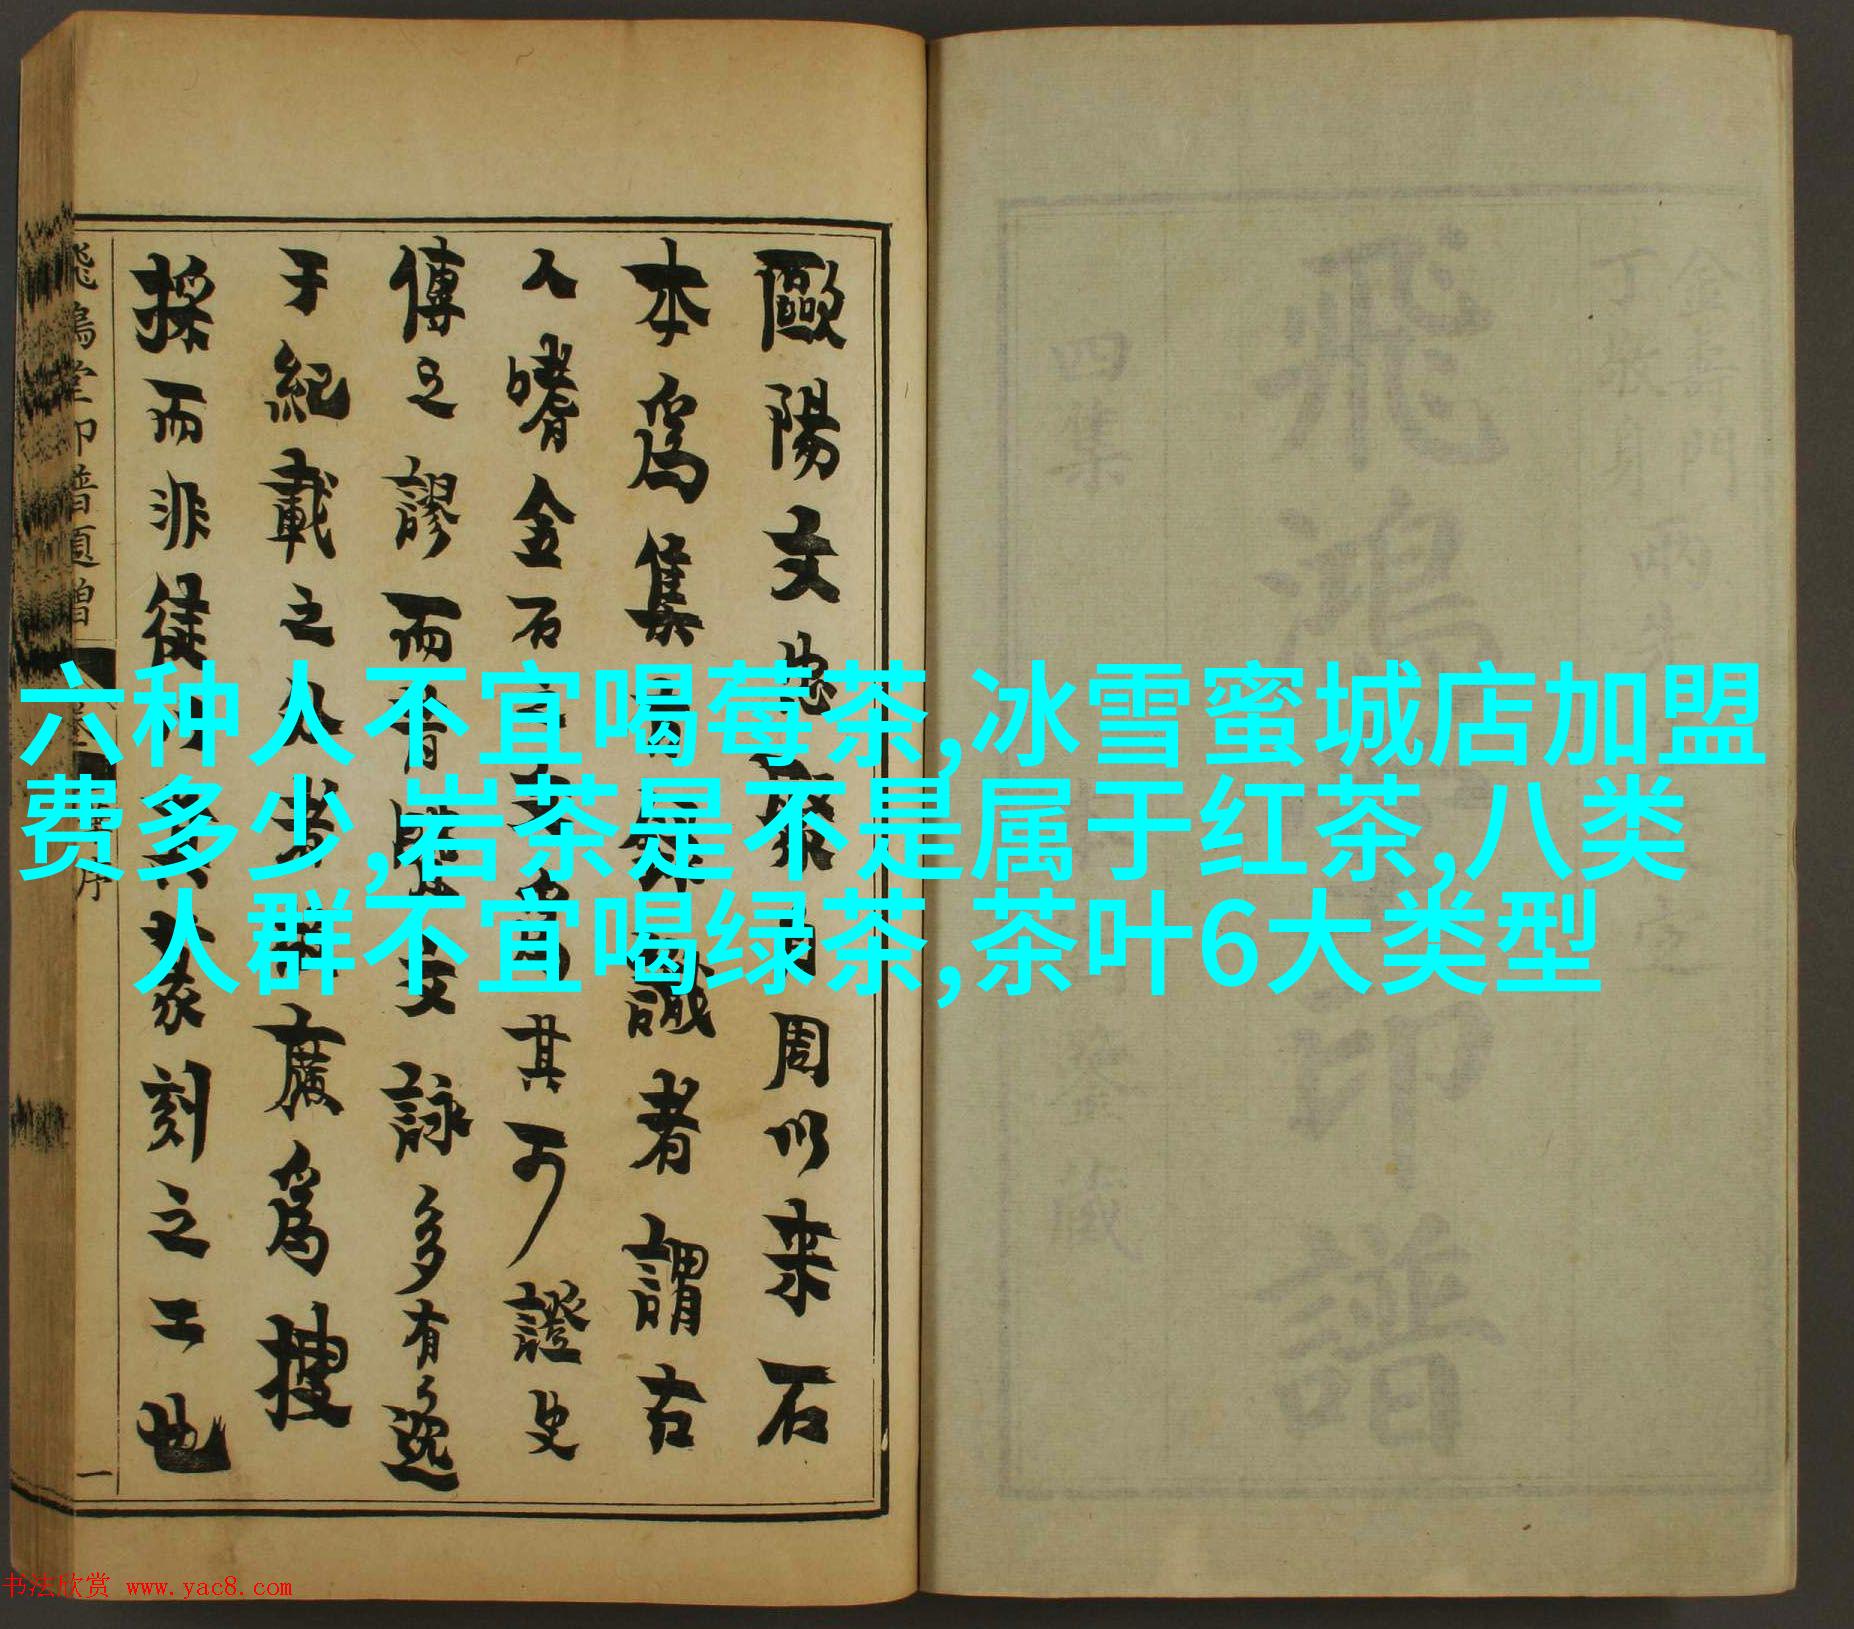 六种人不宜喝莓茶,冰雪蜜城店加盟
费多少,岩茶是不是属于红茶,八类
人群不宜喝绿茶,茶叶6大类型
金壽門
丁敬身
兩先
定
飛鴻堂印譜
四集
鑒藏
歐陽文忠聚自周以来石
本為集古録識者謂古
人嗜金石文為其可證史
傳之謬而晉文詠多有逸
于紀載之外者為搜
採而非徒篆刻之工也
飛鴻堂印譜題贈
序
一
书法欣赏 www.yac8.com